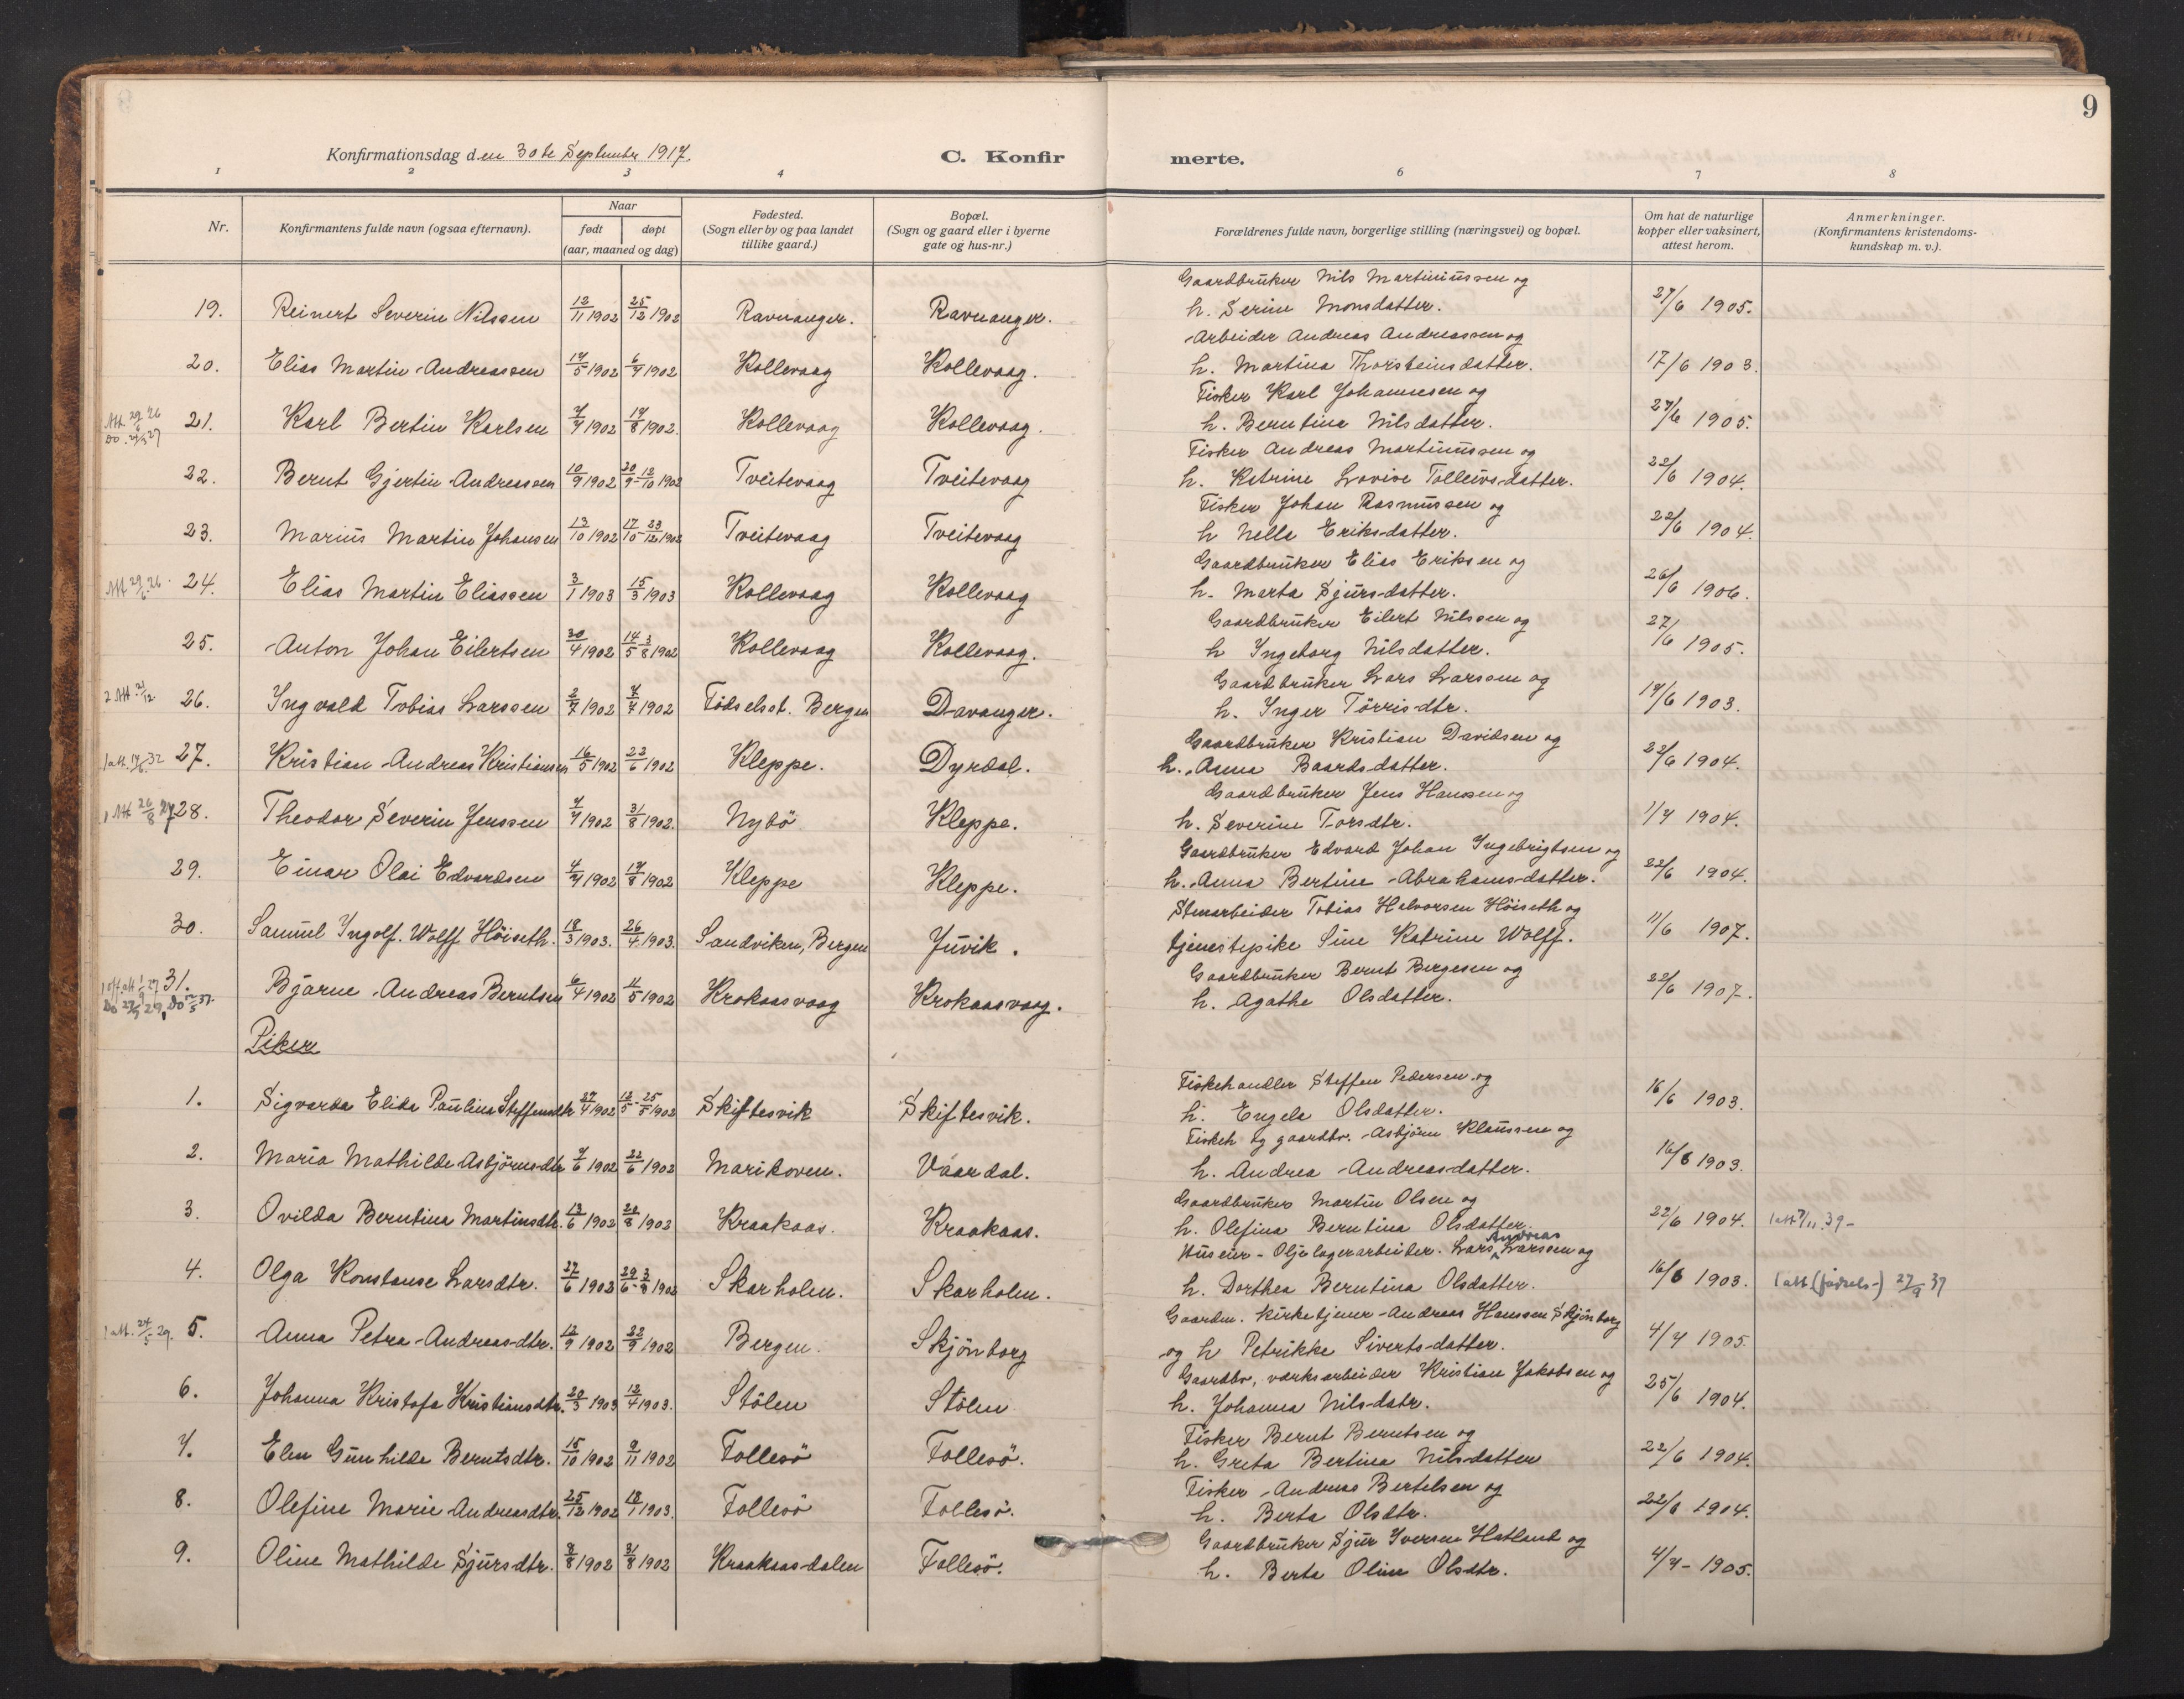 9
Konfirmationsdag den 30te September 1917.
C. Konfirmerte.
1 2 3 4 6 7 8
Nr. | Konfirmantens fulde navn (ogsaa efternavn). | Naar født døpt (aar, maaned og dag) | Fødested. (Sogn eller by og paa landet tillike gaard.) | Bopæl. (Sogn og gaard eller i byerne gate og hus-nr.) | Forældrenes fulde navn, borgerlige stilling (næringsvei) og bopæl. | Om hat de naturlige kopper eller vaksinert, attest herom. | Anmerkninger. (Konfirmantens kristendomskundskap m. v.).
19. Reinert Severin Nilssen 12/11 1902 25/12 1902 Ravnanger. Ravnanger. Gaardbruker Nils Martinussen og
h. Serine Monsdatter. 27/6 1905.
20. Elias Martin Andreassen 14/5 1902 6/7 1902 Kollevaag Kollevaag. Arbeider Andreas Andreassen og
h. Martina Thorsteinsdatter. 17/6 1903.
21. Karl Bertin Karlsen 7/7 1902 17/8 1902. Kollevaag Kollevaag. Fisker Karl Johannesen og
h. Berntina Nilsdatter. 27/6 1905.
22. Bernt Gjertin Andreassen 10/9 1902 20/9-12/10 1902 Tveitevaag Tveitevaag Fisker Andreas Martinussen og
h. Katrine Lovise Tolleivsdatter. 22/6 1904.
23. Marius Martin Johansen 13/10 1902 17/10-23/12 1902 Tveitevaag Tveitevaag Fisker Johan Rasmussen og
h Nella Eriksdatter. 22/6 1904.
Att 29/6 26. 24. Elias Martin Eliassen 3/1 1903 15/3 1903 Kollevaag Kollevaag Gaardbruker Elias Eriksen og
h. Marta Sjursdatter. 26/6 1906.
25. Anton Johan Eilertsen 30/4 1902 14/5 3/8 1902 Kollevaag Kollevaag. Gaardbruker Eilert Nilssen og
h Ingeborg Nilsdatter. 27/6 1905.
26. Ingvald Tobias Larssen 2/7 1902 7/7 1902 Fødselsst. Bergen Davanger. Gaardbruker Lars Larsen og
h. Inger Törrisdtr. 17/6 1903.
1 att. 17/6 32 27. Kristian Andreas Kristiansen 16/5 1902 23/6 1902 Kleppe. Dyrdal. Gaardbruker Kristian Davidsen og
h. Anna Baardsdatter. 22/6 1904.
1 Att 26/8 27 28. Theodor Severin Jenssen 7/7 1902 31/8 1902. Nybö Kleppe. Gaardbruker Jens Hansen og
h. Severine Torsdtr. 1/7 1904.
29. Einar Olai Edvardsen 4/7 1902 17/8 1902 Kleppe Kleppe. Gaardbruker Edvard Johan Ingebrigtsen og
h. Anna Bertine Abrahamsdatter. 22/6 1904.
30. Samuel Ingolf. Wolff Höiseth. 18/3 1903. 26/4 1903. Sandviken, Bergen Juvik. Stenarbeider Tobias Halvorsen Höiseth og
tjenestepike Sine Katrine Wolff. 11/6 1907.
31. Bjarne Andreas Berntsen 6/4 1902 11/5 1902 Krokaasvaag Krokaasvaag. Gaardbruker Bernt Bergesen og
h. Agathe Olsdatter. 22/6 1907.
Piker
1. Sigvarda Elida Paulina Steffensdtr 27/4 1902 12/5-25/5 1902 Skiftesvik Skiftesvik. Fiskehandler Steffen Pedersen og
h. Engela Olsdatter. 16/6 1903.
2. Maria Mathilde Asbjörnsdtr 7/6 1902 22/6 1902 Marikoven. Vaardal. Fiskeh og gaardbr. Asbjörn Klaussen og
h. Andrea Andreasdatter. 16/6 1903.
3. Ovilda Berntina Martinsdtr. 13/6 1902 20/8 1902 Kraakaas. Kraakaas. Gaardbruker Martin Olsen og
h. Olefina Berntina Olsdatter. 22/6 1904. 1 att 7/11 39-
4. Olga Konstanse Larsdtr. 27/6 1902 29/6-3/8 1902 Skarholen. Skarholen. Huseier - Oljelagerarbeider. Lars Andreas Larssen og
h. Dorthea Berntina Olsdatter. 16/6 1903. 1 att (fødsels-) 27/9 37
1 att. 24/5 29. 5. Anna Petra Andreasdtr. 12/9 1902 22/9 1902 Bergen. Skjönborg Gaardm. kirketjener Andreas Hanssen Skjönborg
og h Petrikke Sivertsdatter. 4/7 1905.
6. Johanna Kristofa Kristiansdtr. 20/3 1903 12/4 1903. Stölen Stölen Gaardbr, værksarbeider Kristian Jakobsen og
h. Johanna Nilsdatr. 25/6 1904.
7. Elen Gunhilda Berntsdtr. 15/10 1902 9/11 1902 Follesö Follesö. Fisker Bernt Berntsen og
h. Greta Bertina Nilsdatter 22/6 1904.
8. Olefine Marie Andreasdtr. 25/12 1902 18/1 1903. Follesö Follesö. Fisker Andreas Bertelsen og
h. Berta Olsdtr. 22/6 1904.
9. Oline Mathilde Sjursdtr. 8/8 1902 31/8 1902 Kraakaasdalen Follesö. Gaardbruker Sjur Iversen Hatland og
h. Berta Oline Olsdtr. 4/7- 1905.